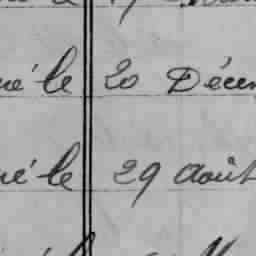 né le 20 Décem
né le 29 août